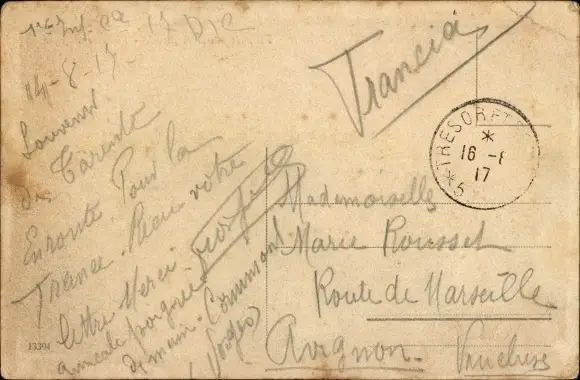 17 Dic
14-8-17
Souvenir
de Tarente
En route. Pour la
France. Reçu votre
lettre Merci.
amicale poignée
de main.
(Vosges)
Francia
TRESOR ET
*
16 -8
17
* 5 *
Mademoiselle
Marie Rousset
Route de Marseille
Avignon. Vaucluse
13394